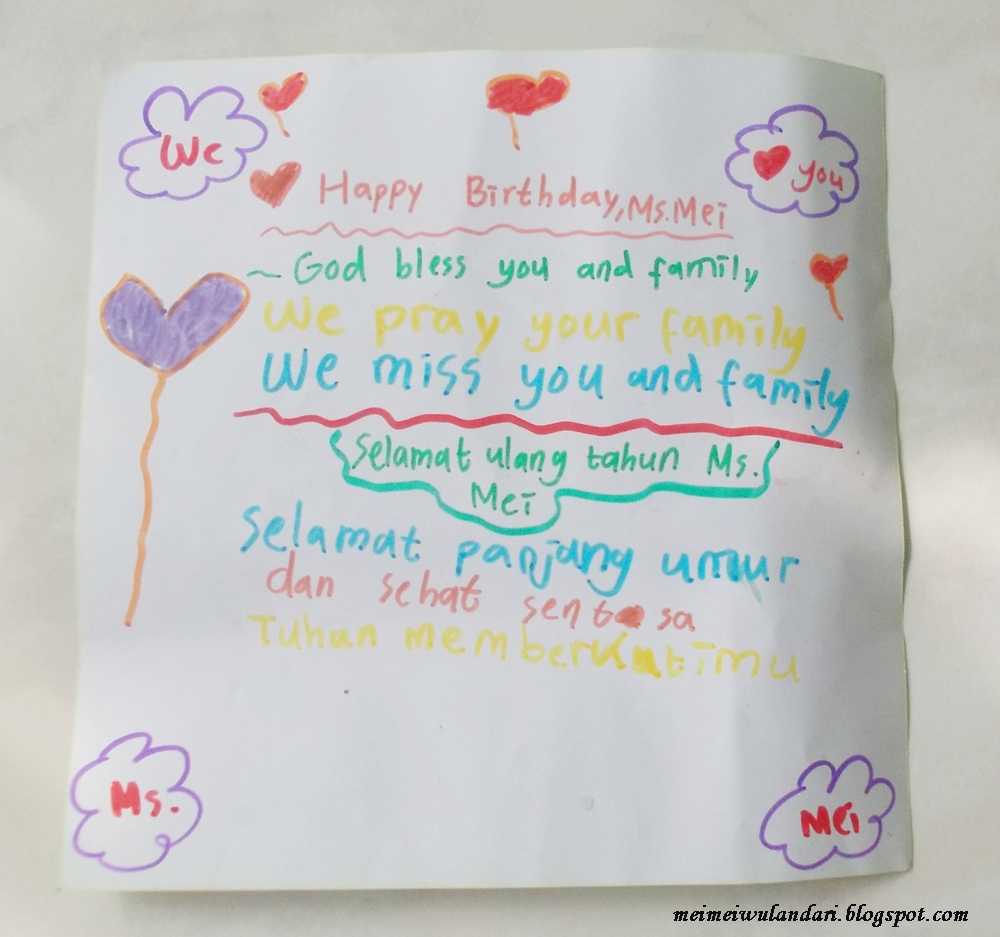 We
you
Happy Birthday, Ms. Mei
~ God bless you and family
We pray your family
We miss you and family
Selamat ulang tahun Ms.
Mei
Selamat panjang umur
dan sehat sentosa
Tuhan memberkatimu
Ms.
Mei
meimeiwulandari.blogspot.com